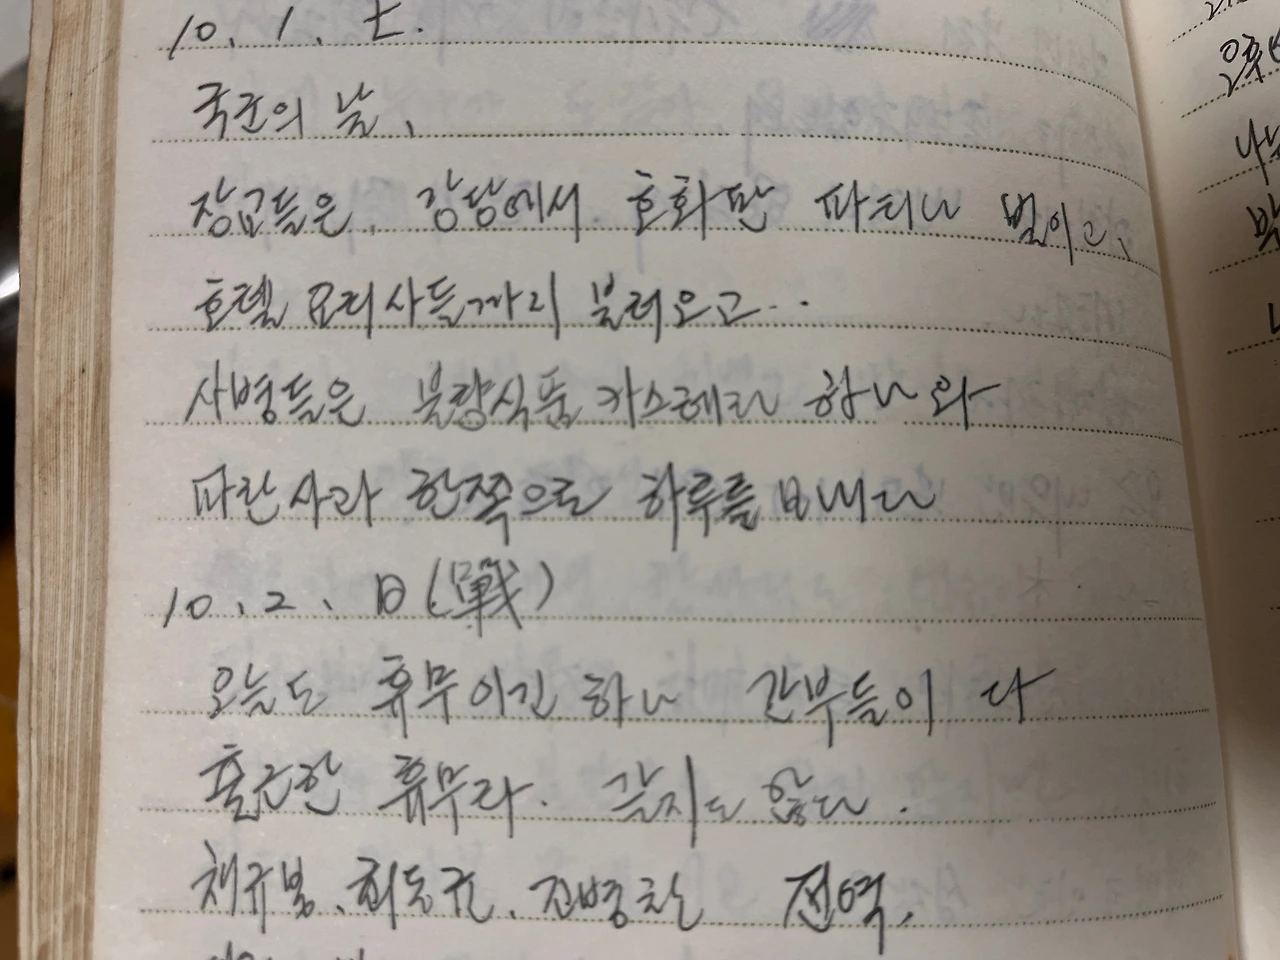 10. 1. 土.
국군의 날,
장교들은, 강당에서 호화판 파티나 벌이고,
호텔 요리사들까지 불려오고..
사병들은 불량식품 카스테라 하나와
파란 사과 한쪽으로 하루를 보내다
10. 2. 日(戰)
오늘도 휴무이긴 하나 간부들이 다
출근한 휴무라. 같지도 않다.
채규봉, 최동규, 전병찬 전역,